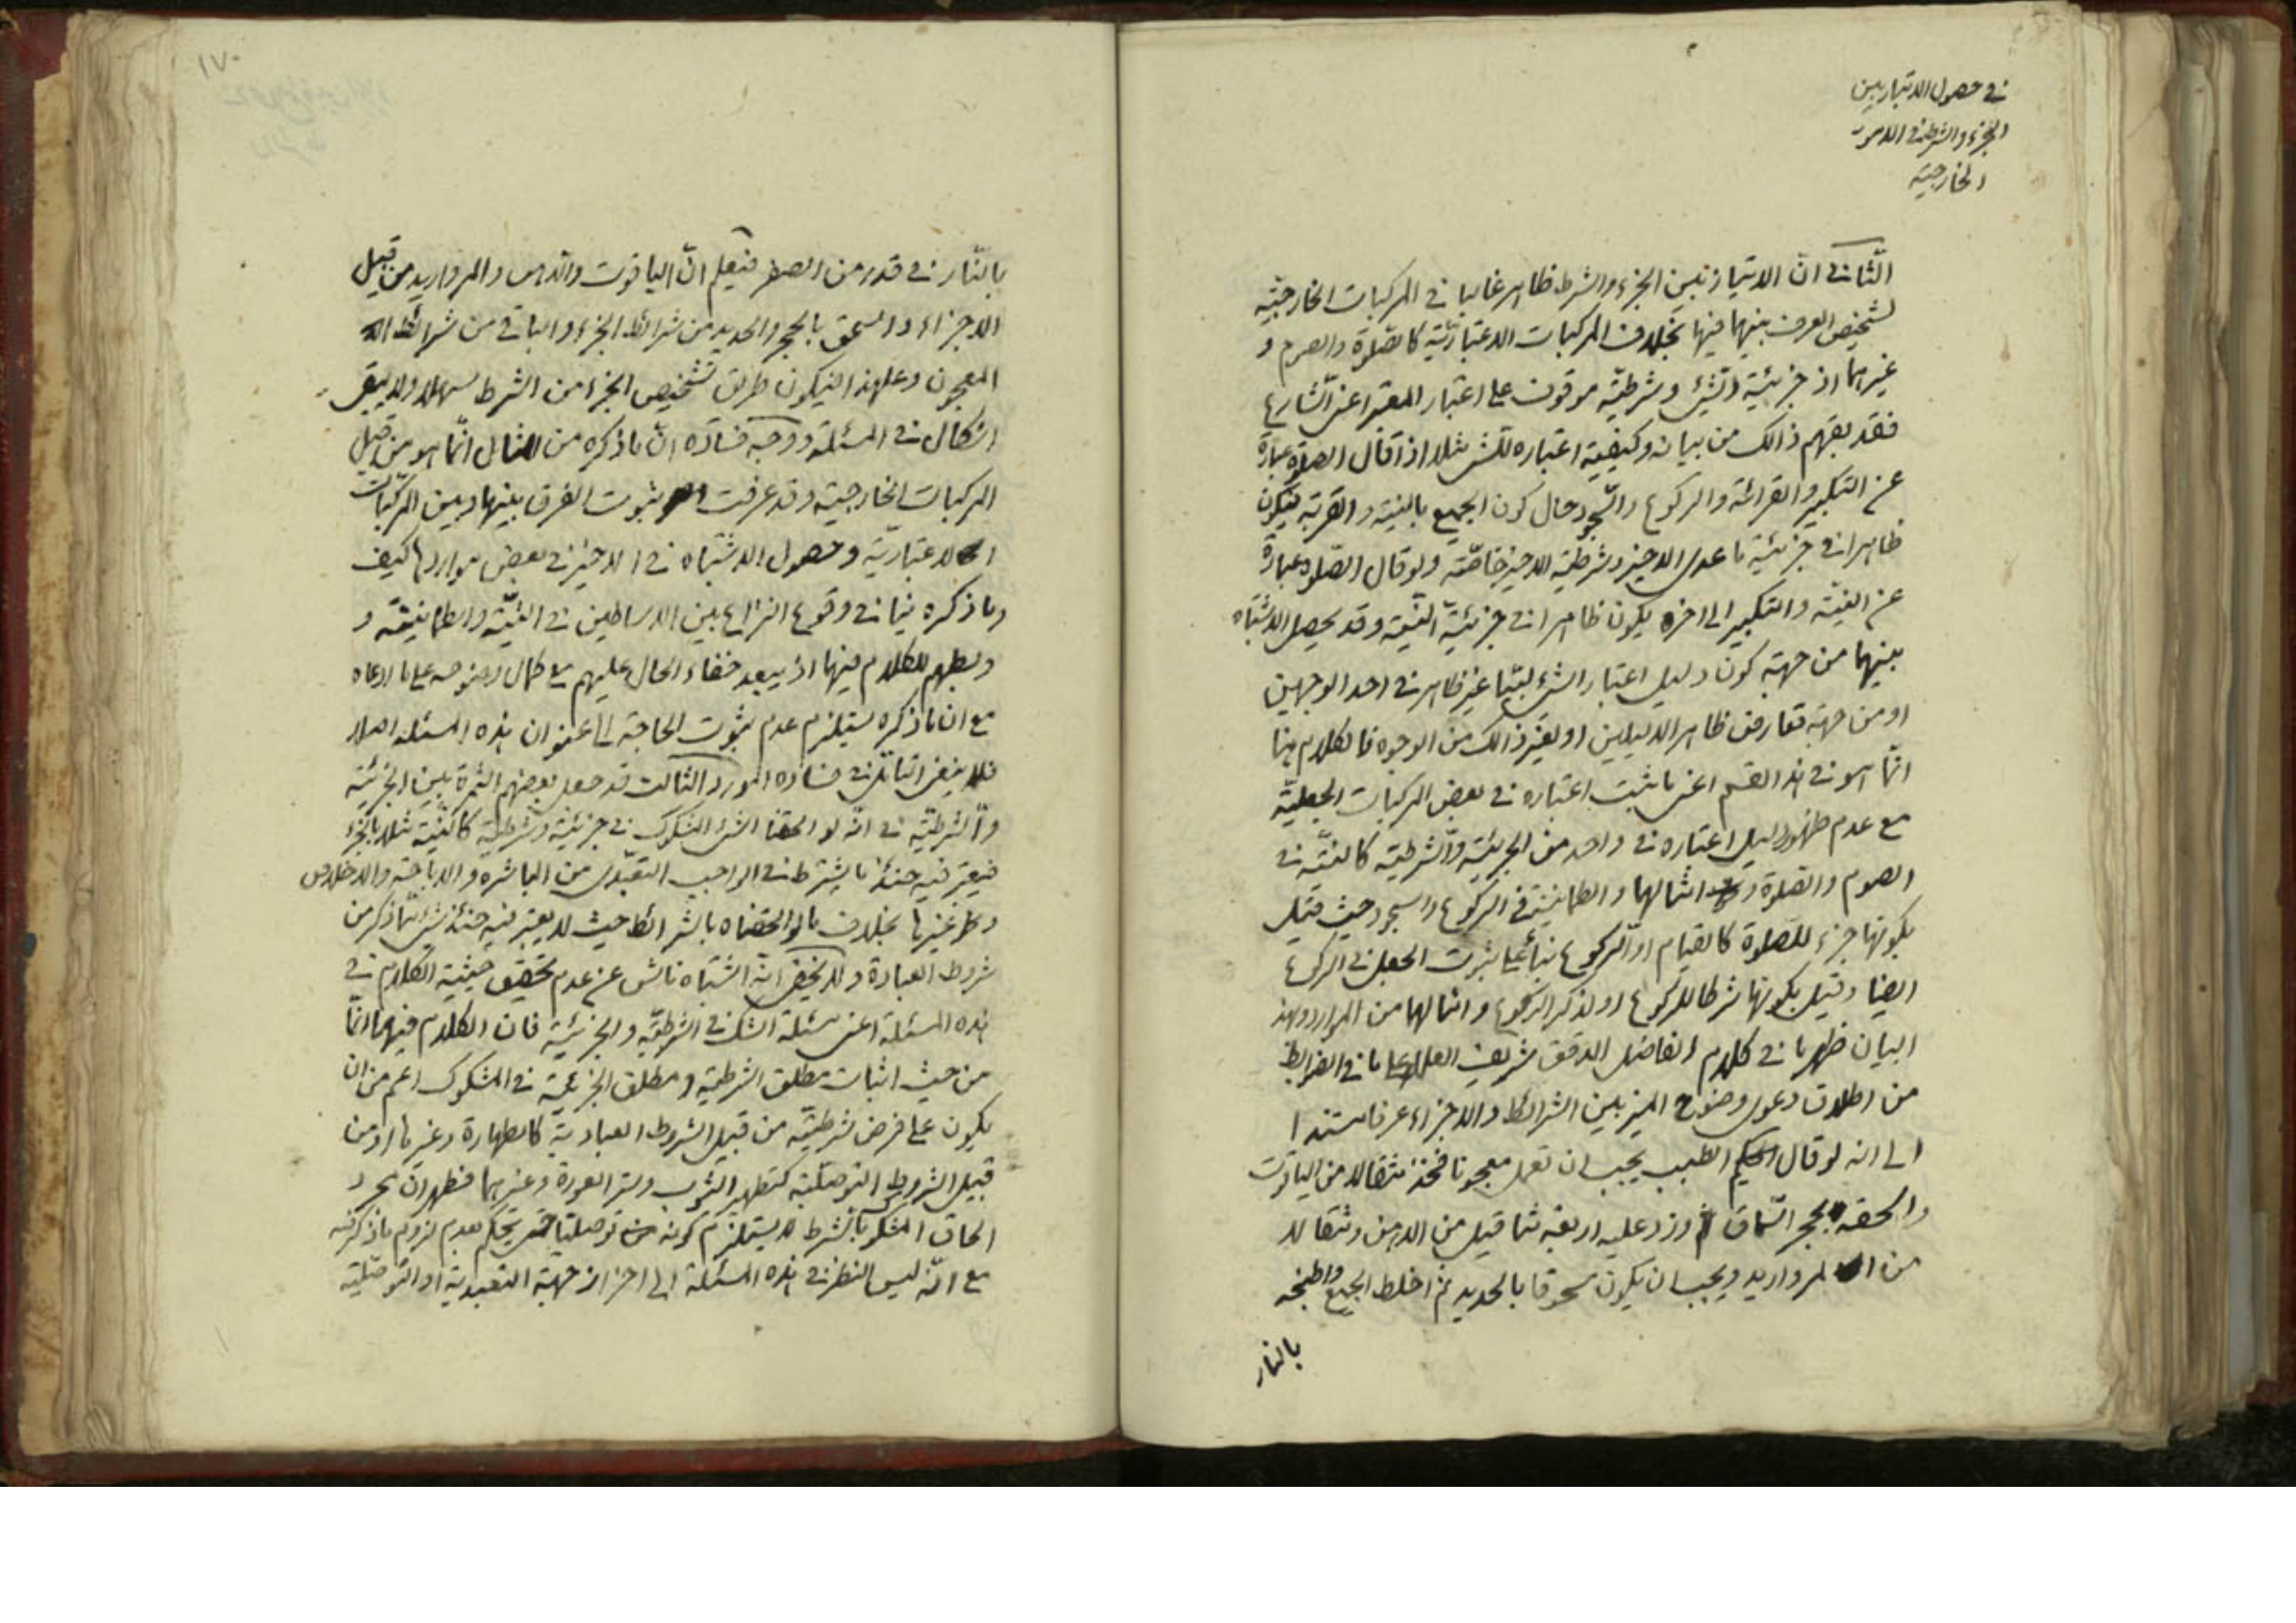 في حصول الامتياز بين
الجزء والشرط في الامور
الخارجية
الثاني انّ الامتياز بين الجزء والشرط ظاهر غالبا في المركبات الخارجيّة
لتشخيص العرف بينهما فيها بخلاف المركبات الاعتباريّة كالصّلوة والصوم و
غيرهما اذ جزئيّة الشئ وشرطيّته موقوف على اعتبار المعتبر اعني الشارع
فقد يفهم ذالك من بيانه وكيفيّة اعتباره للشئ مثلا اذا قال الصلوة عبارة
عن التكبير والقرائة والركوع والسّجود حال كون الجميع بالنيّة والقربة فيكون
ظاهرا في جزئيّة ما عدى الاخير وشرطيّة الاخير خاصّة ولو قال الصّلوة عبارة
عن النيّة والتكبير الى اخره يكون ظاهرا في جزئيّة النّيّة وقد يحصل الاشتباه
بينهما من جهة كون دليل اعتبار الشئ لبّيا غير ظاهر في احد الوجهين
او من جهة تعارض ظاهر الدليلين او لغير ذالك من الوجوه فالكلام هنا
انّما هو في هذا القسم اعني ما ثبت اعتباره في بعض المركبات الجعليّة
مع عدم ظهور دليل اعتباره في واحد من الجزئيّة والشّرطيّة كالنيّة في
الصوم والصّلوة و امثالهما والطمانينة في الركوع والسجود حيث قيل
بكونها جزء للصّلوة كالقيام او الرّكوع بناء على ثبوت الجعل في الركوع
ايضا وقيل بكونها شرطا للركوع او لذكر الركوع وامثالها من الموارد وبهذا
البيان ظهر ما في كلام الفاضل المدقق شريف العلماء على ما في الضوابط
من اطلاق دعوى وضوح الميز بين الشرائط والاجزاء عرفا مستندا
الى انه لو قال الطبيب يجب ان تعمل معجونا فخذ مثقالا من الياقوت
واسحقه بحجر السّماق وزد عليه اربعة مثاقيل من الدهن ومثقالا
من المرواريد ويجب ان يكون مسحوقا بالحديد ثم اخلط الجميع واطبخه
بالنار
١٧٠
بالنّار في قدر من الصفر فيعلم انّ الياقوت والدهن والمرواريد من قبيل
الاجزاء والسحق بالحجر والحديد من شرائط الجزء والباقي من شرائط
المعجون وعلى هذا فيكون طريق تشخيص الجزء من الشرط سهلا ولا يبقى
اشكال في المسئلة ووجه فساده انّ ما ذكره من المثال انّما هو من قبيل
المركبات الخارجية وقد عرفت ثبوت الفرق بينها وبين المركّبات
الاعتباريّة وحصول الاشتباه في الاخير في بعض مواردها كيف
وما ذكره ينافي وقوع النزاع بين الاساطين في النيّة والطمانينة و
وبطهم للكلام فيها اذ يبعد خفاء الحال عليهم مع كمال وضوحه على ما ادعاه
مع ان ما ذكره يستلزم عدم ثبوت الحاجة الى عنوان هذه المسئله اصلا
فلا ينبغي التامّل في فساده المورد الثالث قد جعل بعضهم الثمرة بين الجزئيّة
والشرطيّة في انّه لو الحقنا الشئ المشكوك في جزئيّته وشرطيّته كالنيّة مثلا بالجزء
فيعتبر فيه حينئذ ما يشترط في الواجب التعبّدي من المباشره والاباحة والاخلاص
وغيرها بخلاف ما لو الحقناه بالشرائط حيث لا يعتبر فيه حينئذ شئ ممّا ذكر من
شروط العبادة ولا يخفى انّه اشتباه ناش عن عدم تحقيق حيثيّة الكلام في
هذه المسئلة اعني مسئلة الشك في الشرطيّة والجزئيّة فان الكلام فيهما انّما
من حيث اثبات مطلق الشرطية ومطلق الجزئيّة في المشكوك اعم من ان
يكون على فرض شرطيّته من قبيل الشروط العباديّة كالطهارة وغيرها او من
قبيل الشروط التوصّليّة كتطهير الثوب وستر العورة وغيرهما فظهر ان مجرد
الحاق المشكوك بالشرط لا يستلزم كونه توصليّا حتى يحكم بعدم لزوم ما ذكر فيه
مع انّه ليس النظر في هذه المسئلة الى احراز جهة التعبدية او التوصّليّة